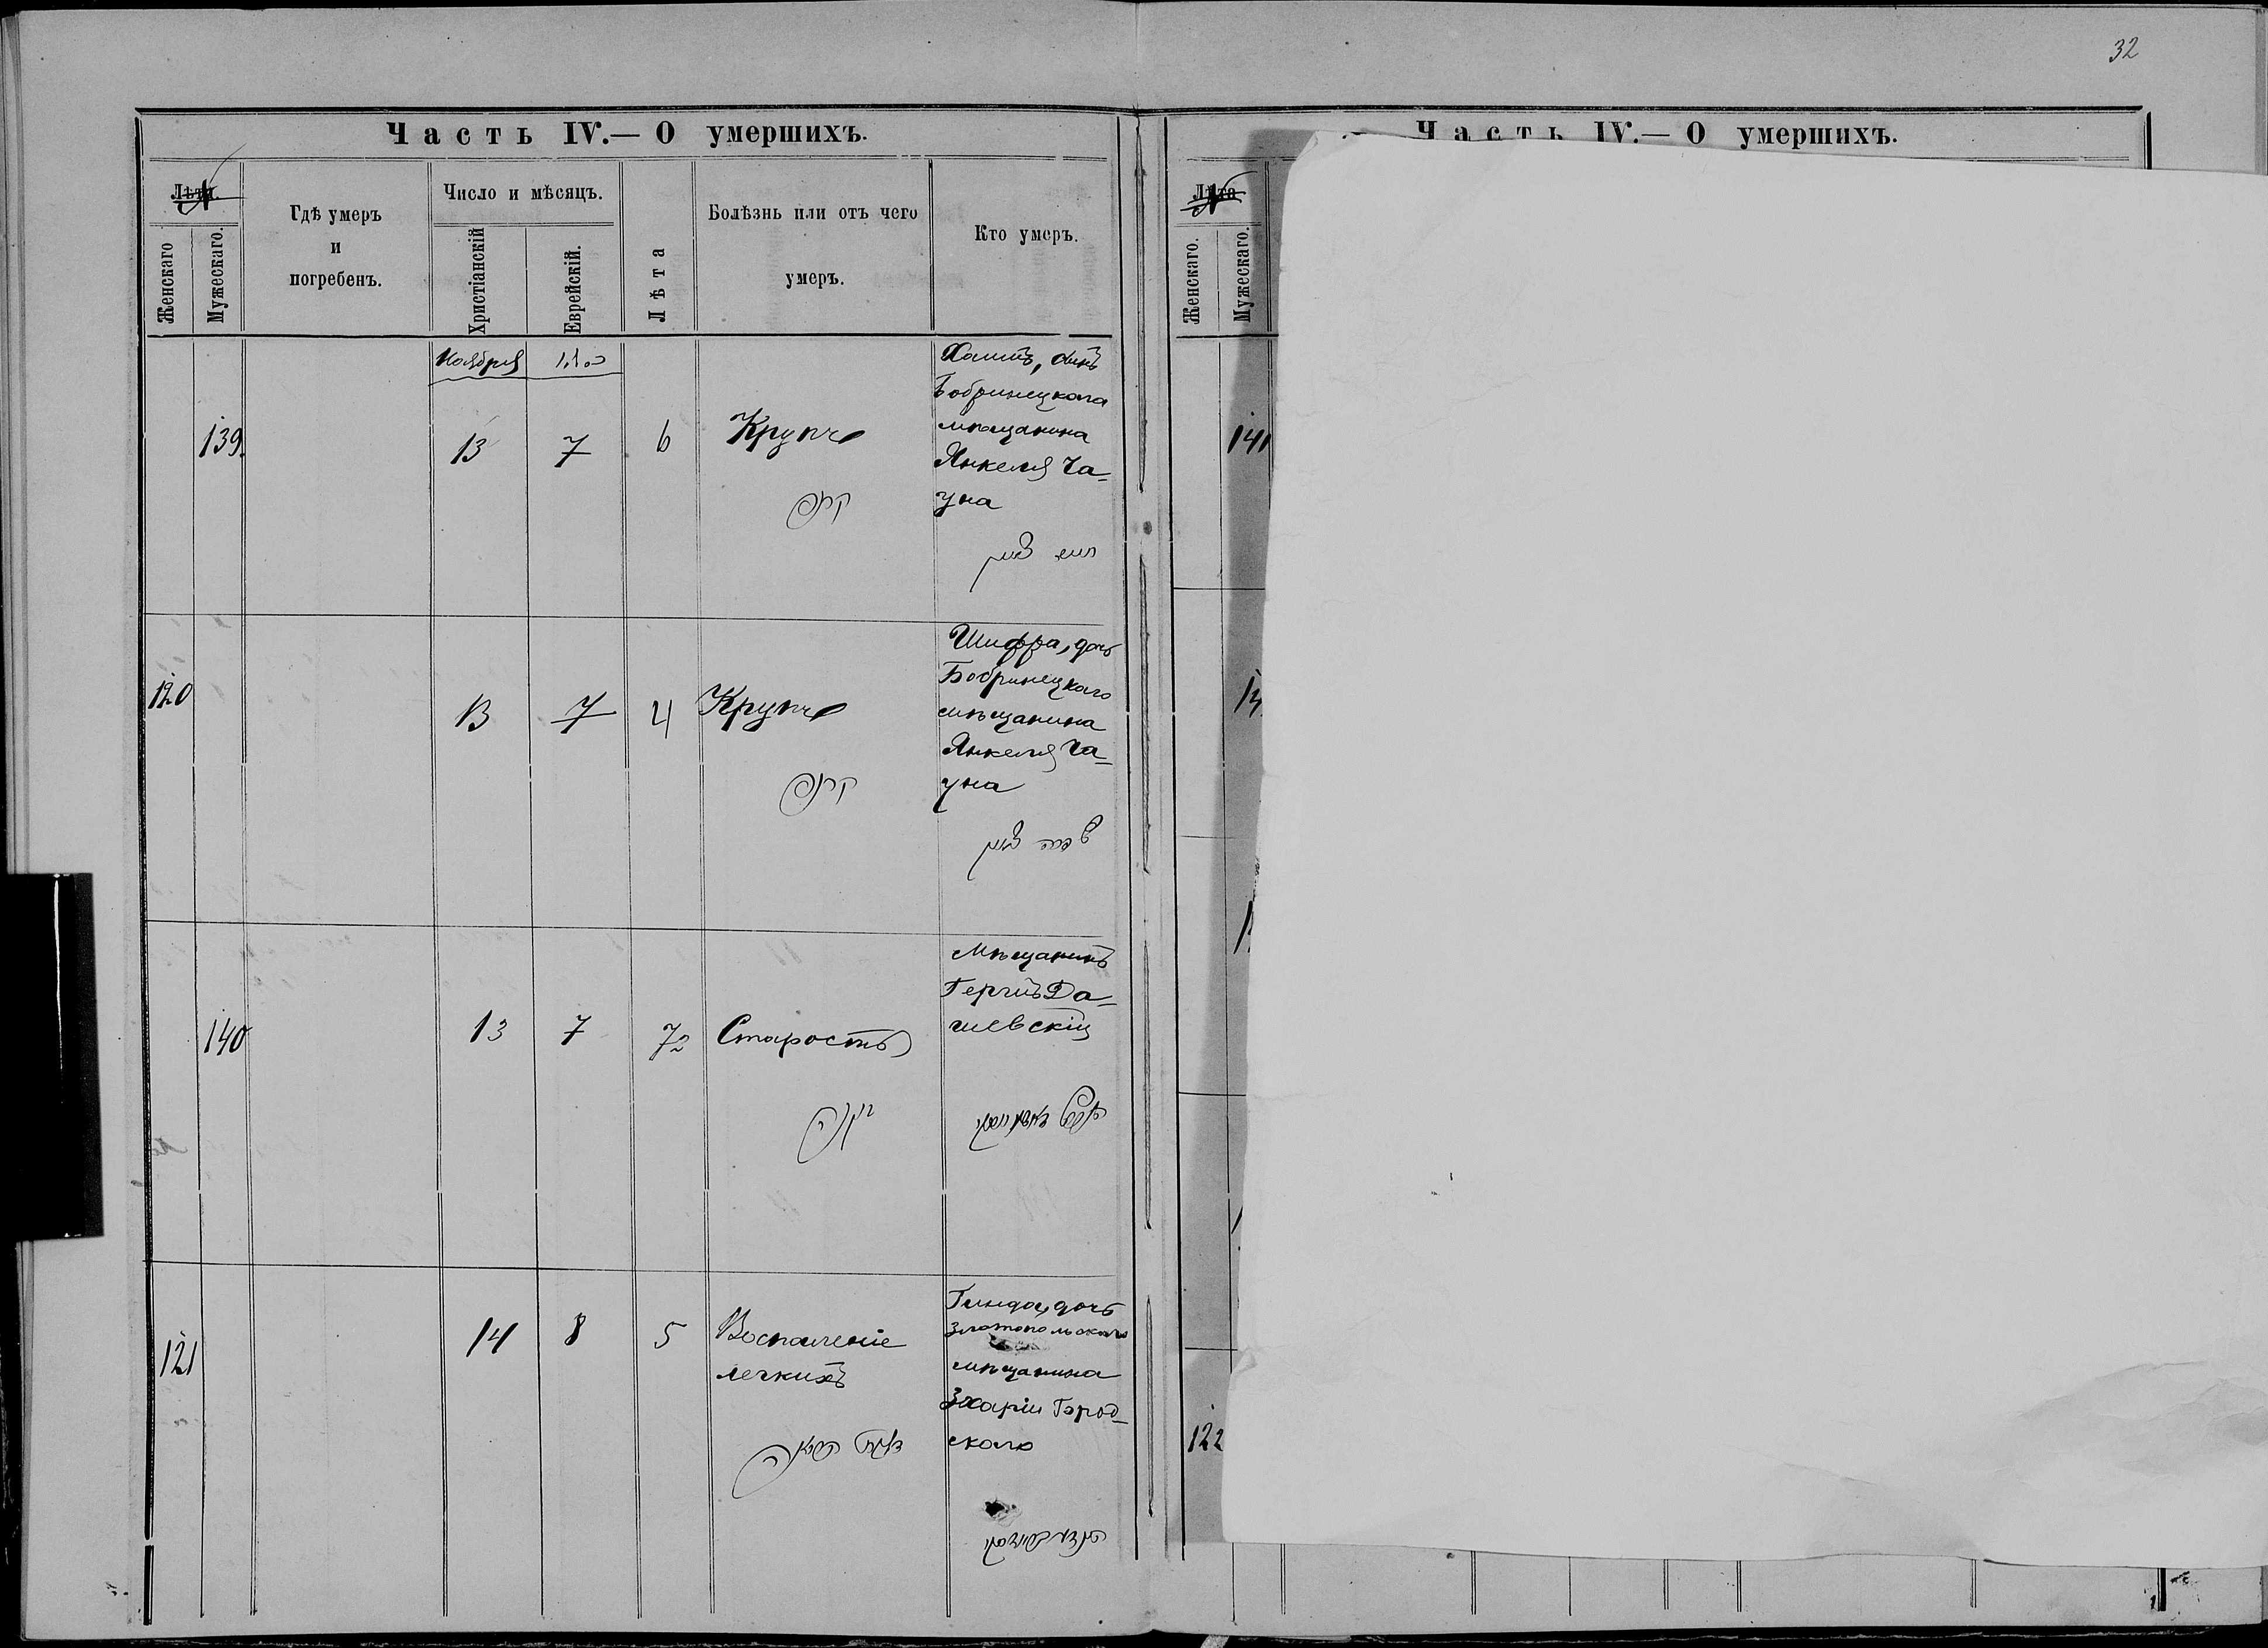 32
Часть IV.— О умершихъ.
Лѣта.
№
Женскаго
Мужескаго.
Гдѣ умеръ
и
погребенъ.
Число и мѣсяцъ.
Христіанскій
Еврейскій.
Лѣта
Болѣзнь или отъ чего
умеръ.
Кто умеръ.
Ноября
כסלו
139.
13
7
6
Крупъ
קרופ
Хаимъ, сынъ
Бобринецкаго
мѣщанина
Янкеля Ча-
уна
חיים
120
13
7
4
Крупъ
קרופ
Шифра, дочь
Бобринецкаго
мѣщанина
Янкеля Ча-
уна
שפרה
140
13
7
72
Старость
זקנה
Мѣщанинъ
Гершъ Да-
шевскій
הירש
121
14
8
5
Воспаленіе
легкихъ
דלקת הריאה
Гинда, дочь
Златопольскаго
мѣщанина
Зхаріи Город-
скаго
הינדא
Часть IV.— О умершихъ.
Лѣта
№
Женскаго.
Мужескаго.
141
122